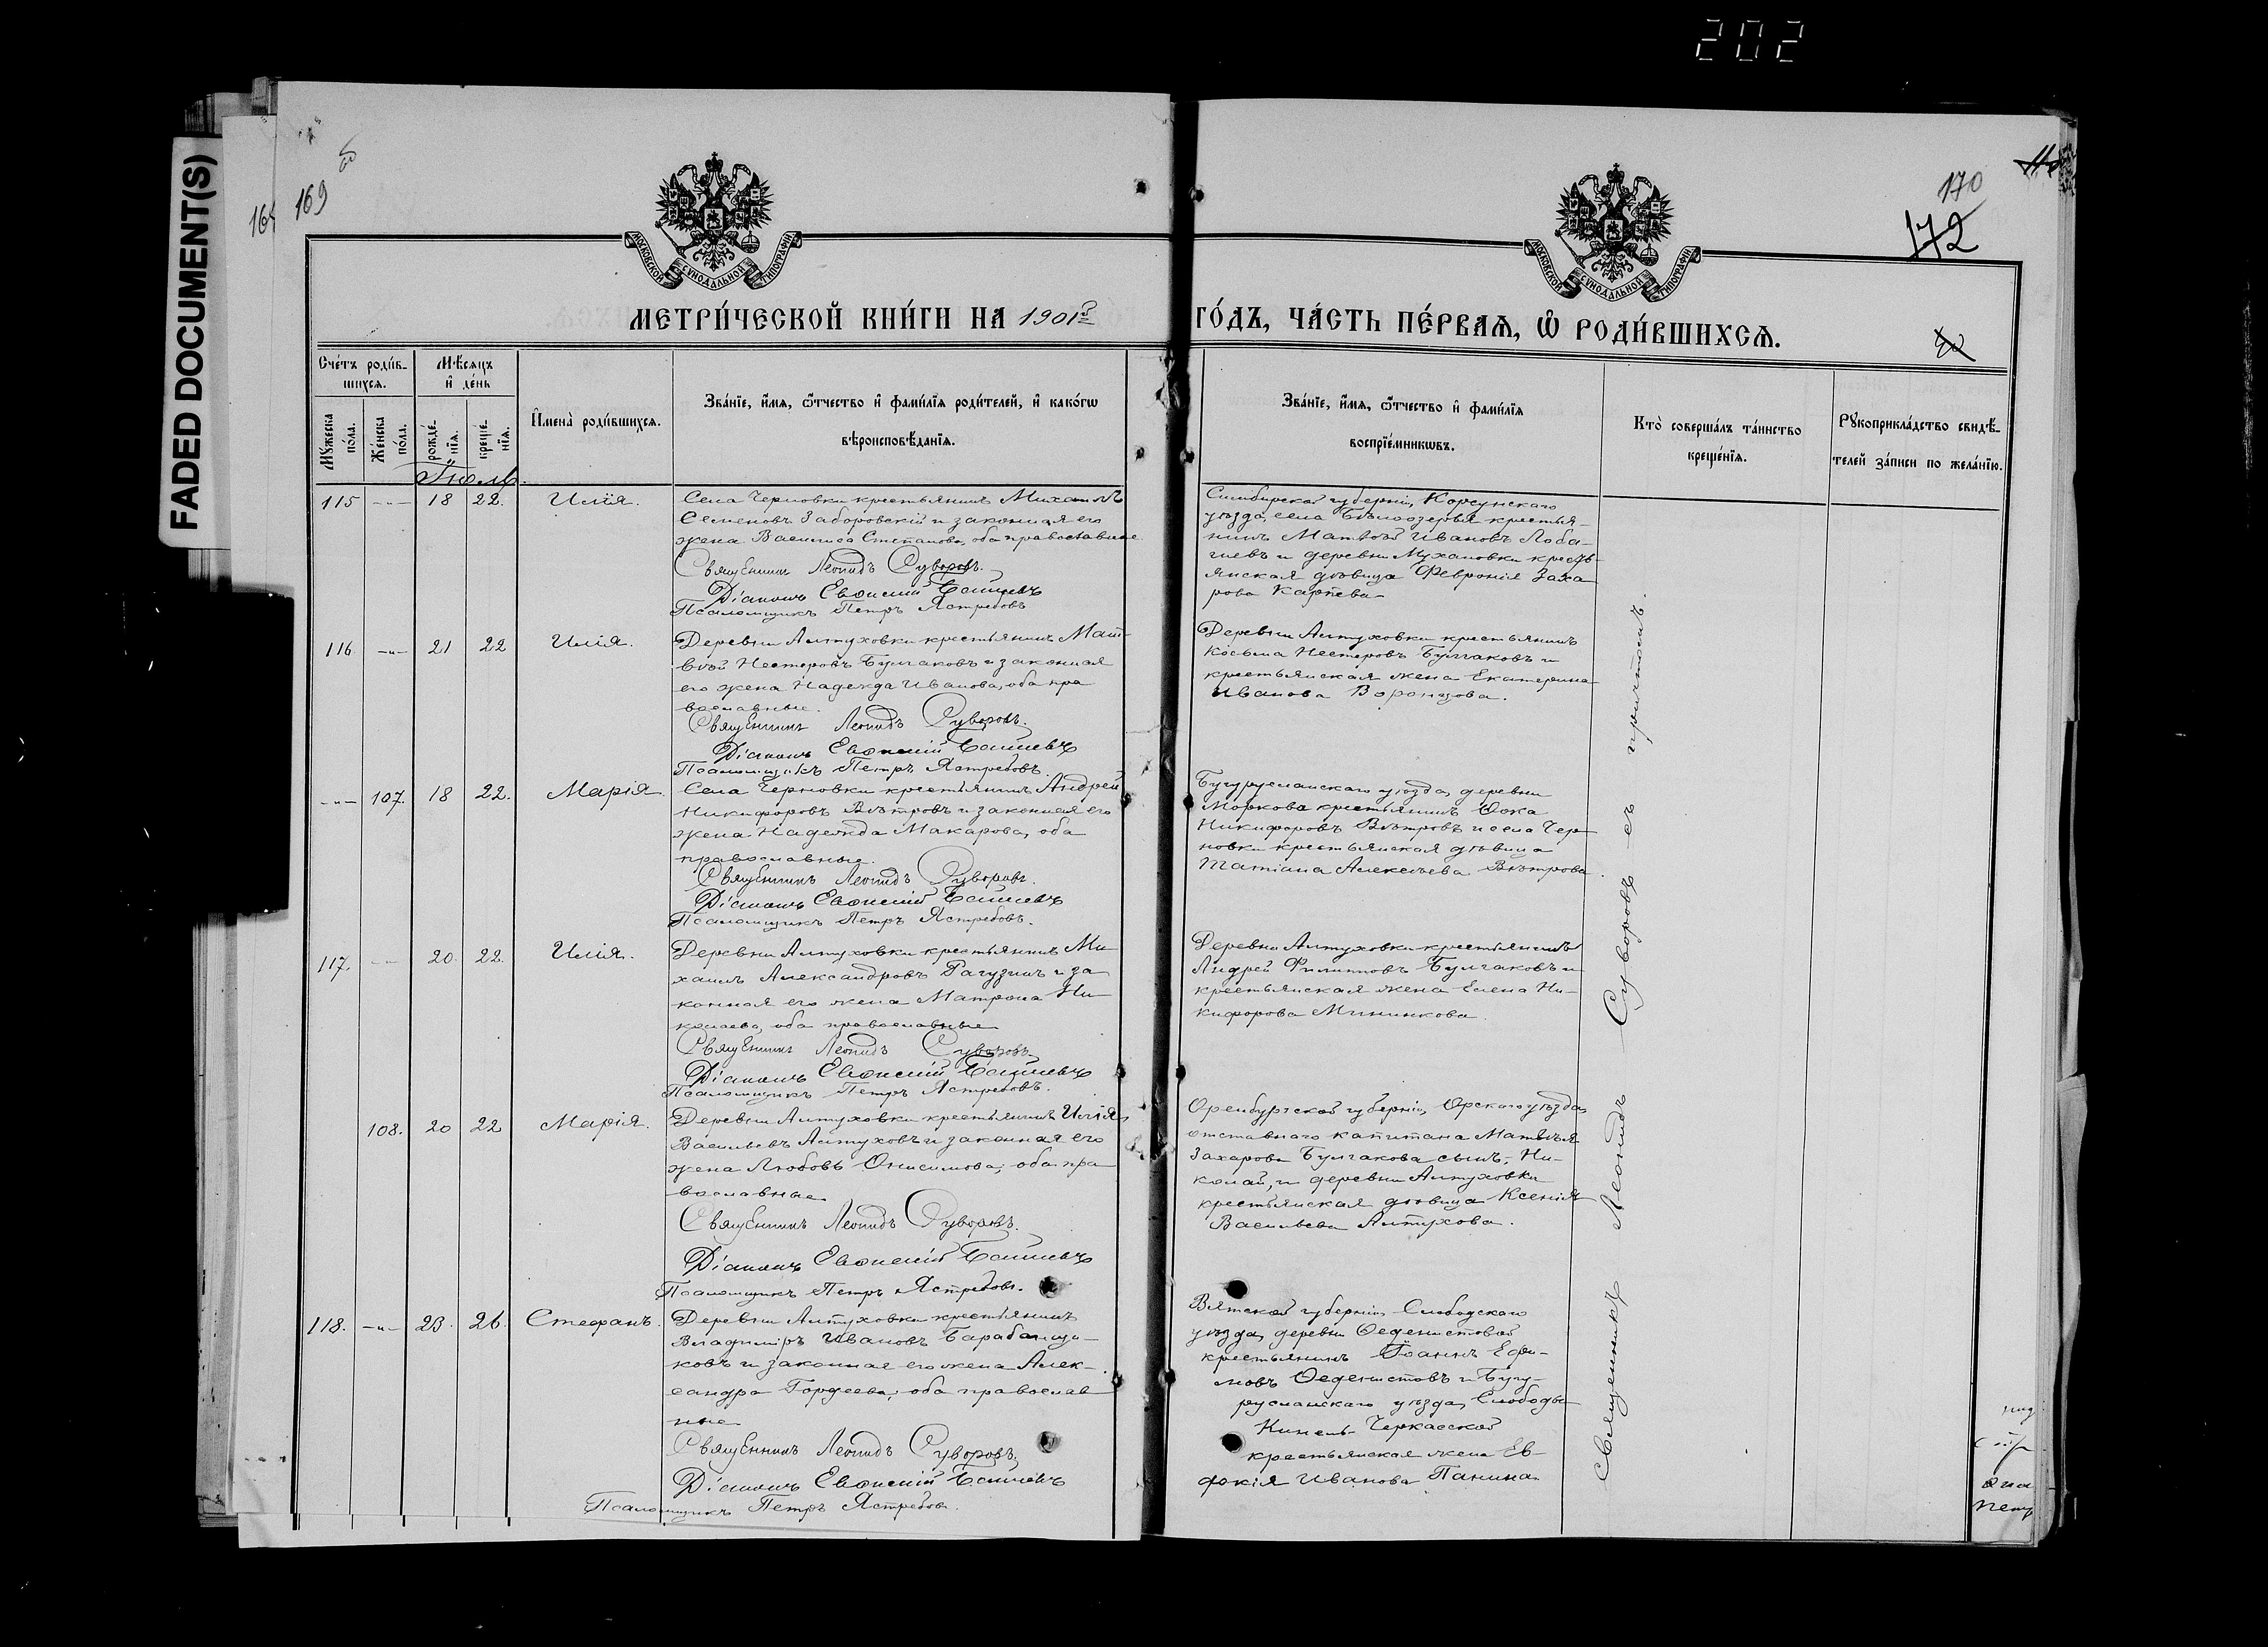 202
FADED DOCUMENT(S)
169
170
172
МОСКОВСКОЙ СѴНОДАЛЬНОЙ ТИПОГРАФІИ
МОСКОВСКОЙ СѴНОДАЛЬНОЙ ТИПОГРАФІИ
МЕТРИ́ЧЕСКОЙ КНИ́ГИ НА 1901й
ГО́ДЪ, ЧА́СТЬ ПЕ́РВАѦ, Ѡ҆ РОДИ́ВШИХСѦ.
Сче́тъ роди́в-
шихсѧ.
Мѣ́сѧцъ
и҆ де́нь
Мꙋ́жеска
по́ла.
Же́нска
по́ла.
рожде́-
нїѧ.
креще́-
нїѧ.
И҆мена̀ роди́вшихсѧ.
Зва́нїе, и҆́мѧ, ѻ҆́тчество и҆ фами́лїѧ роди́телей, и҆ како́гѡ
вѣроисповѣ́данїѧ.
Зва́нїе, и҆́мѧ, ѻ҆́тчество и҆ фами́лїѧ
воспрїе́мникѡвъ.
Кто̀ соверша́лъ та́инство
креще́нїѧ.
Рꙋкоприкла́дство свидѣ́-
телей за́писи по жела́нїю.
Іюль.
115 18 22. Илія.
Села Черновки крестьянинъ Михаилъ
Семеновъ Заборовскій и законная его
жена Василиса Степанова, оба православные
Священникъ Леонидъ Суворовъ.
Діаконъ
Псаломщикъ Петръ Ястребовъ
Симбирской губерніи, Корсунскаго
уѣзда, села Бѣлоозерья крестья-
нинъ Матвѣй Ивановъ Лоба-
чевъ и деревни Мухановки кресть-
янская дѣвица Февронія Заха
рова Карпева
116 21 22 Илія.
Деревни Алтуховки крестьянинъ Мат-
вѣй Нестеровъ Булгаковъ и законная
его жена Надежда Иванова, оба пра
вославные.
Священникъ Леонидъ Суворовъ.
Діаконъ
Псаломщикъ Петръ Ястребовъ.
Деревни Алтуховки крестьянинъ
Косьма Нестеровъ Булгаковъ и
крестьянская жена Екатерина
Иванова Воронцова.
107. 18 22. Марія.
Села Черновки крестьянинъ Андрей
Никифоровъ Вѣтровъ и законная его
жена Надежда Макарова, оба
православные.
Священникъ Леонидъ Суворовъ.
Діаконъ
Псаломщикъ Петръ Ястребовъ.
Бугурусланскаго уѣзда, деревни
Моркова крестьянинъ Ѳока
Никифоровъ Вѣтровъ и села Чер
новки крестьянская дѣвица
Татіана Алексѣева Вѣтрова.
117. 20. 22. Илія.
Деревни Алтуховки крестьянинъ Ми-
хаилъ Александровъ Рагузинъ и за
конная его жена Матрона Ни-
колаева, оба православные
Священникъ Леонидъ Суворовъ
Діаконъ
Псаломщикъ Петръ Ястребовъ.
Деревни Алтуховки крестьянинъ
Андрей Филиповъ Булгаковъ и
крестьянская жена Елена Ни-
кифорова Мининкова.
108. 20 22 Марія.
Деревни Алтуховки крестьянинъ Илія
Васильевъ Алтуховъ и законная его
жена Любовь Онисимова, оба пра
вославные
Священникъ Леонидъ Суворовъ.
Діаконъ
Псаломщикъ Петръ Ястребовъ.
Оренбургской губерніи, Орскаго уѣзда
отставнаго капитана Матвѣя
Захарова Булгакова сынъ, Ни-
колай, и деревни Алтуховки
крестьянская дѣвица Ксенія
Васильева Алтухова.
118. 23. 26. Стефанъ.
Деревни Алтуховки крестьянинъ
Владиміръ Ивановъ Барабанщи-
ковъ и законная его жена Алек-
сандра Гордеева, оба православ
ные
Священникъ Леонидъ Суворовъ.
Діаконъ
Псаломщикъ Петръ Ястребовъ.
Вятской губерніи, Слободскаго
уѣзда, деревни
крестьянинъ Іоаннъ Ефи-
мовъ и Бугу-
русланскаго уѣзда, Слободы
Кинель-Черкасской
крестьянская жена Ев-
докія Иванова Панина
Священникъ Леонидъ Суворовъ съ причтомъ.